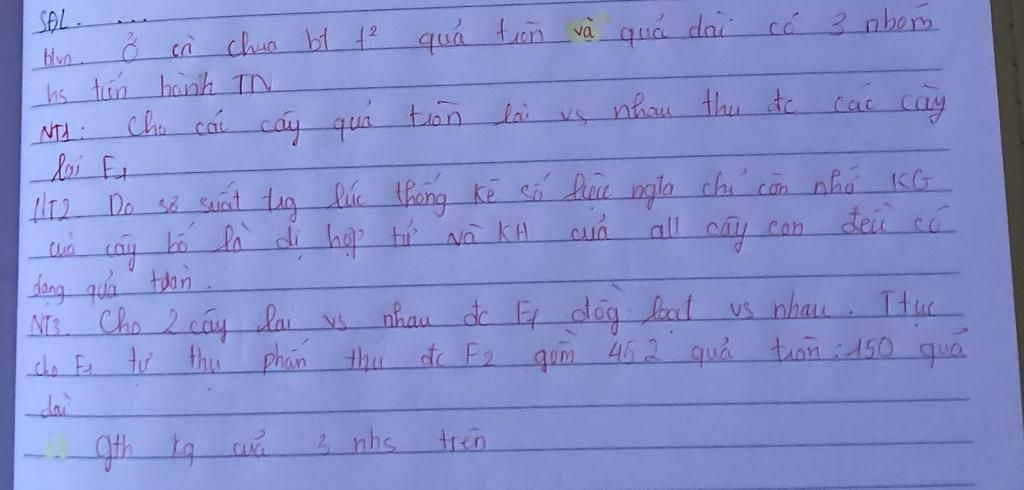 SĐL. ...
btvn. Ở cà chua bt t² quả tròn và quả dài có 3 nhóm
hs tiến hành TN
NT1: Cho các cây quả tròn lai vs nhau thu đc các cây
lai F1
NT2 Do sơ suất trg lúc thống kê số lược ngta chỉ còn nhớ KG
của cây bố là dị hợp tử và KH của all cây con đều có
dạng quả tròn.
NT3. Cho 2 cây lai vs nhau đc F1 đồg loạt vs nhau. Ttục
cho F1 tự thụ phấn thu đc F2 gồm 452 quả tròn : 150 quả
dài
gth kq của 3 nhs trên